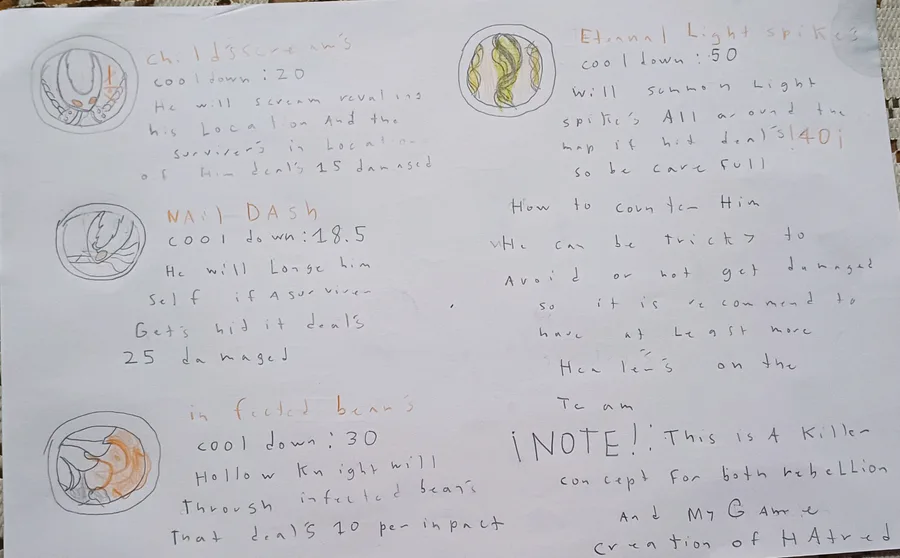 Child's Scream's
cooldown: 20
He will scream revaling
his Location And the
surviver's in Location
of Him deal's 15 damaged
NAil DASH
cool down: 18.5
He will Longe him
self if A surviver
Get's hid it deal's
25 damaged
infected bean's
cool down: 30
Hollow Knight will
Through infected bean's
That deal's 10 per inpact
Eternal Light spikes
cooldown: 50
will summon Light
spike's All around the
map if hit deal's !40¡
so be care full
How to counter Him
He can be tricky to
Avoid or not get damaged
so it is recommend to
have at Least more
Healer's on the
Team
¡NOTE!: This is A Killer
concept For both rebellion
And My GAme
creation of HAtred